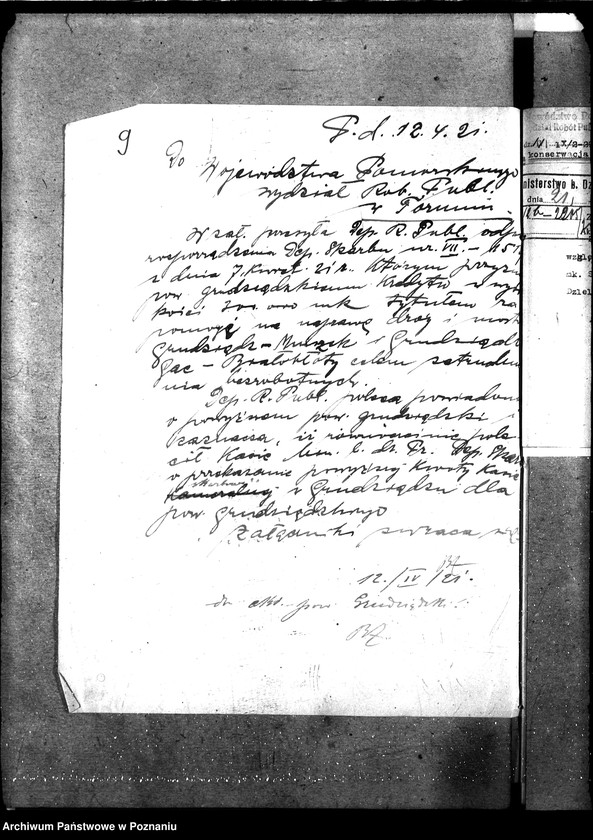 9
P. d. 12.4.21.
Do Województwa Pomorskiego
wydział Rob. Publ.
w Toruniu.
W zał. przesyła Dep. R. Publ. odpis
rozporządzenia Dep. Skarbu nr. VII –
z dnia 7. kwiet. 21 r. którym
pow. grudziądzkiemu kredytu w wyso
kości 200.000 mk tytułem za
pomogi na naprawę drogi i
Grudziądz – i Grudziądz
– Białobłoty celem zatrudnie
nia bezrobotnych.
Dep. R. Publ. polecа powiadomić
o powyższem pow. grudziądzki i
zaznacza, iż równocześnie pole
cił Kasie Min. b. dz. Pr. Dep. Skarbu
o przekazanie powyższej kwoty Kasie
skarbowej
w Grudziądzu dla
pow. grudziądzkiego
Załączniki zwraca się
12./IV/21.
do akt pow. Grudziądzki
Województwo Po
dział Robót Pub
konserwacja
Ministerstwo b. Dz
dnia 21
wzglę
mk. S
Dziel
Archiwum Państwowe w Poznaniu